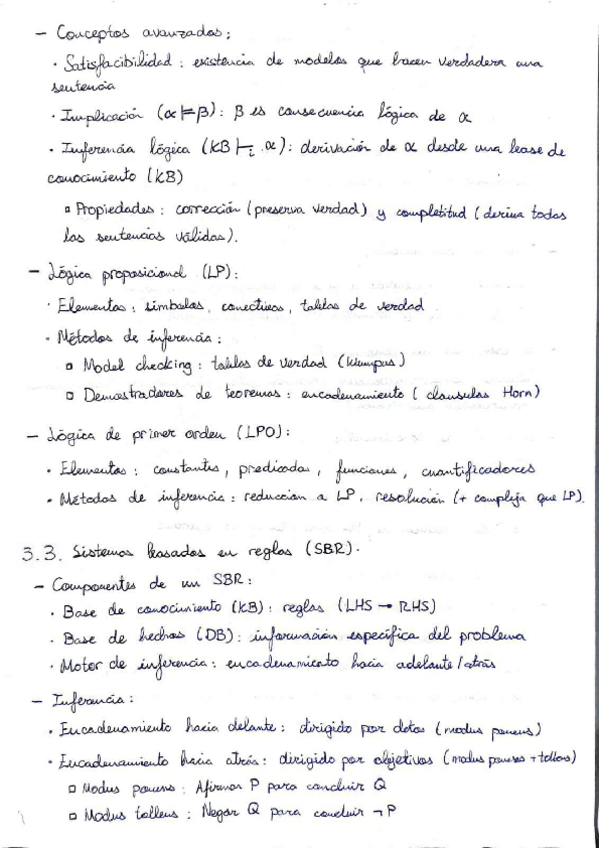 - Conceptos avanzados:
· Satisfacibilidad: existencia de modelos que hacen verdadera una
sentencia
· Implicación (α ⊨ β): β es consecuencia lógica de α
· Inferencia lógica (KB ⊢i α): derivación de α desde una base de
conocimiento (KB)
▫ Propiedades: corrección (preserva verdad) y completitud (deriva todas
las sentencias válidas).
- Lógica proposicional (LP):
· Elementos: símbolos, conectivos, tablas de verdad
· Métodos de inferencia:
▫ Model checking: tablas de verdad (Wumpus)
▫ Demostradores de teoremas: encadenamiento (clausulas Horn)
- Lógica de primer orden (LPO):
· Elementos: constantes, predicados, funciones, cuantificadores
· Métodos de inferencia: reduccion a LP, resolución (+ compleja que LP).
3.3. Sistemas basados en reglas (SBR).
- Componentes de un SBR:
· Base de conocimiento (KB): reglas (LHS → RHS)
· Base de hechos (DB): información específica del problema
· Motor de inferencia: encadenamiento hacia adelante/atrás
- Inferencia:
· Encadenamiento hacia delante: dirigido por datos (modus ponens)
· Encadenamiento hacia atrás: dirigido por objetivos (modus ponens + tollens)
▫ Modus ponens: Afirmar P para concluir Q
▫ Modus tollens: Negar Q para concluir ¬P